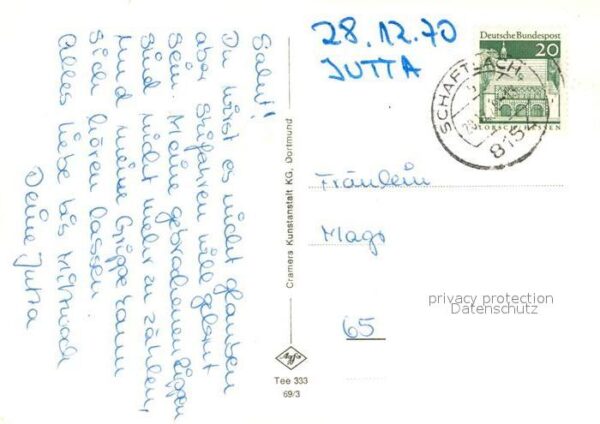 Salut!
Du wirst es nicht glauben
aber Skifahren will gelernt
sein. Meine gebrochenen Rippen
sind nicht mehr zu zählen,
und meine Grippe kann
sich hören lassen
Alles liebe bis Mittwoch
Deine Jutta
Cramers Kunstanstalt KG, Dortmund
Agfa
Tee 333
69/3
28.12.70
JUTTA
Deutsche Bundespost
20
LORSCH/HESSEN
SCHAFTLACH
8151
Fräulein
Mags
privacy protection
Datenschutz
65